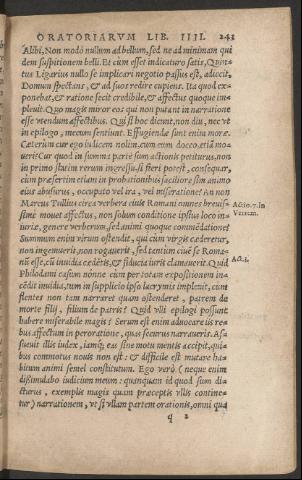 ORATORIARVM LIB. IIII. 241
Alibi, Non modò nullum ad bellum, sed ne ad minimam qui
dem suspitionem belli. Et cùm esset indicaturo satis, Quin-
tus Ligarius nullo se implicari negotio passus est, adiecit,
Domum spectans, & ad suos redire cupiens. Ita quod ex-
ponebat, & ratione fecit credibile, & affectus quoque im-
pleuit. Quo magis miror eos qui non putant in narratione
esse vtendum affectibus. Qui si hoc dicunt, non diu, nec vt
in epilogo, mecum sentiunt. Effugiendæ sunt enim moræ.
Cæterùm cur ego iudicem nolim, cum eum doceo, etiā mo-
uere? Cur quod in summa parte sum actionis petiturus, non
in primo statim rerum ingressu, si fieri potest, consequar,
cùm præsertim etiam in probationibus faciliore sim animo
eius abusurus, occupato vel ira, vel miseratione? An non
Marcus Tullius circa verbera ciuis Romani omnes breuis-
Actio. 7. in
simè mouet affectus, non solùm conditione ipsius loco in-
Verrem.
iuriæ, genere verberum, sed animi quoque commēdatione?
Summum enim virum ostendit, qui cùm virgis cæderetur,
non ingemuerit, non rogauerit, sed tantùm ciuē se Roma-
nū esse, cū inuidia cædētis, & fiducia iuris clamauerit. Quid
Act. 3.
Philodami casum nónne cùm per totam expositionem in-
cēdit inuidia, tum in supplicio ipso lacrymis impleuit, cum
flentes non tam narraret quàm ostenderet, patrem de
morte filij, filium de patris? Quid vlli epilogi possunt
habere miserabile magis? Serum est enim aduocare iis re-
bus affectum in peroratione, quas securus narraueris. As-
sueuit illis iudex, iamq́; eas sine motu mentis accipit, qui-
bus commotus nouis non est: & difficile est mutare ha-
bitum animi semel constitutum. Ego verò (neque enim
dissimulabo iudicium meum: quanquam id quod sum di-
cturus, exemplis magis quàm præceptis vllis contine-
tur) narrationem, vt si vllam partem orationis, omni qua
q 2